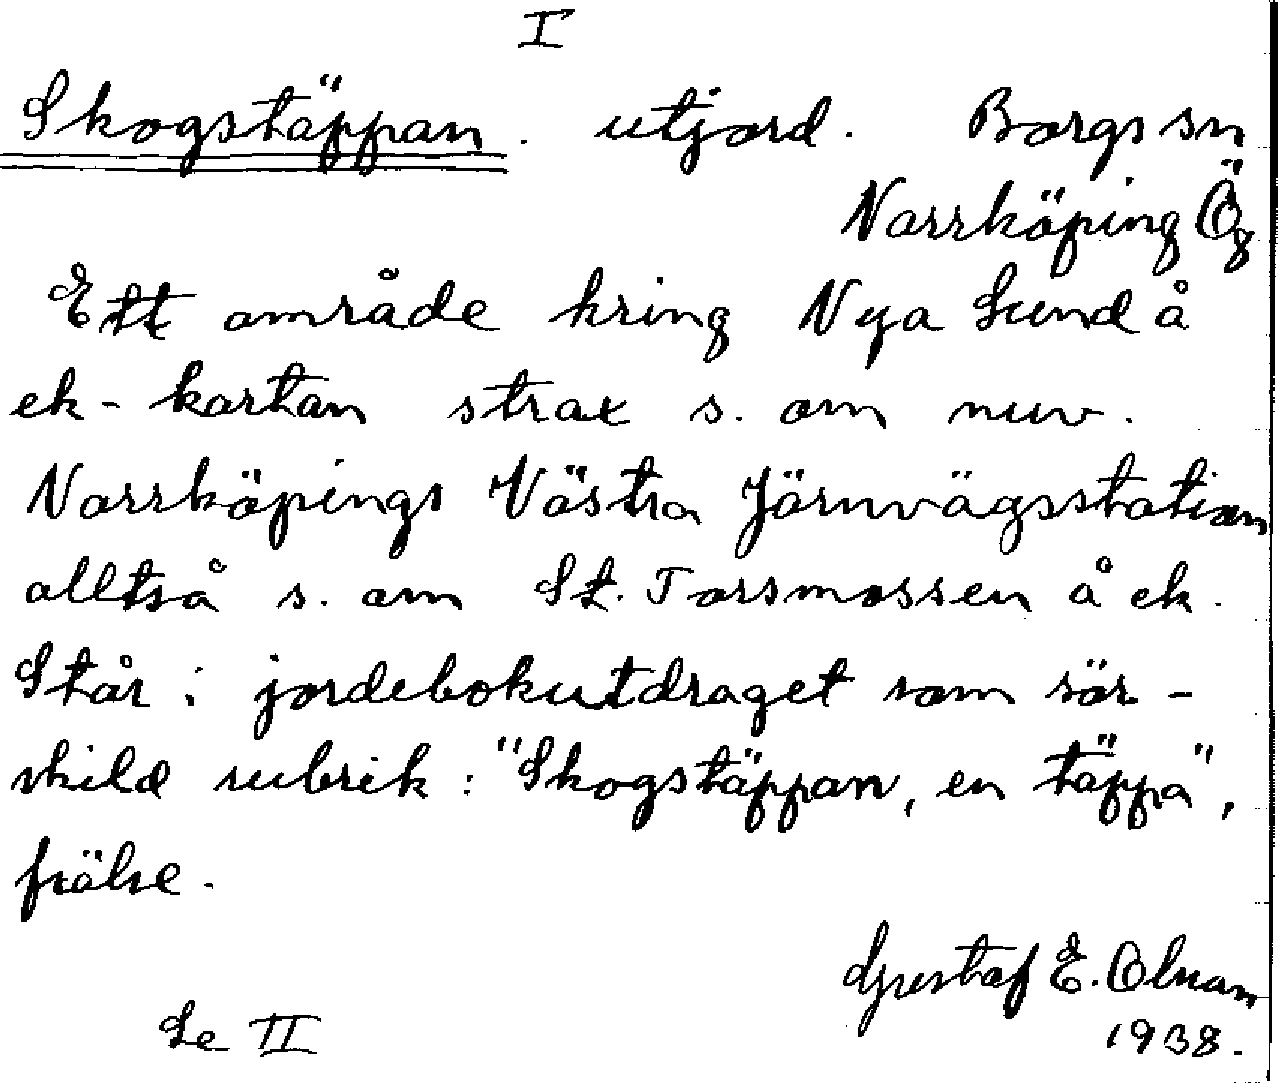 I
Skogstäppan. utjord. Borgs sn
Norrköping Ög
Ett område kring Nya Lund å
ek-kartan strax s. om nuv.
Norrköpings Västra Järnvägsstation
alltså s. om St. Torsmossen å ek.
Står i jordebokutdraget som sär-
skild rubrik: "Skogstäppan, en täppa",
frälse.
Gustaf E. Olsson
1938.
Se II